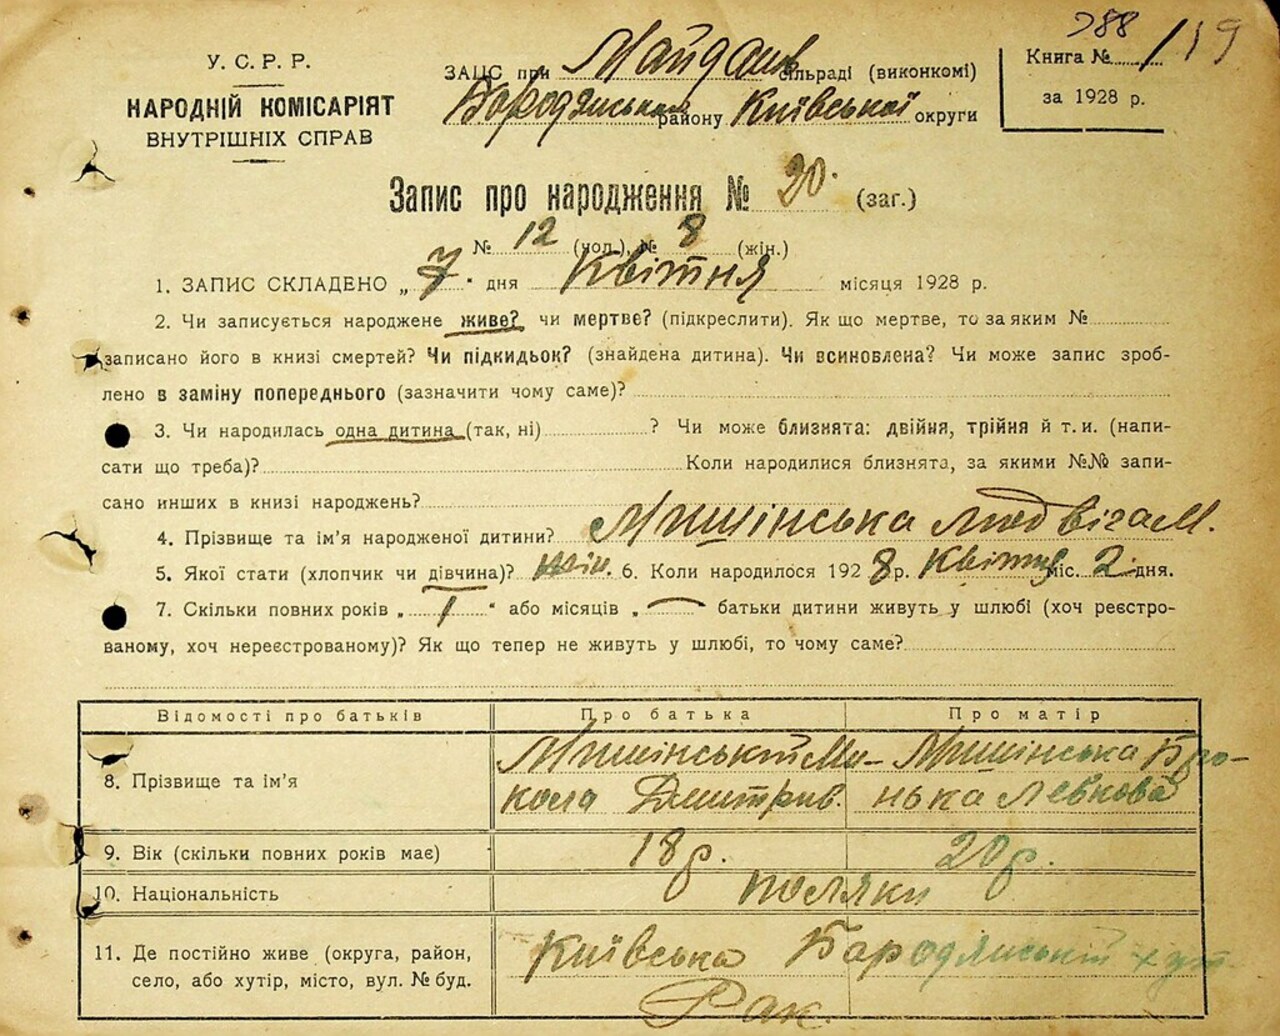 388
/119
У. С. Р. Р.
НАРОДНІЙ КОМІСАРІЯТ
ВНУТРІШНІХ СПРАВ
ЗАЦС при Майданів сільраді (виконкомі)
Бородянському району Київської округи
Книга №
за 1928 р.
Запис про народження № 20. (заг.)
№ 12 (чол.), № 8 (жін.)
1. ЗАПИС СКЛАДЕНО „ 7 " дня Квітня місяця 1928 р.
2. Чи записується народжене живе? чи мертве? (підкреслити). Як що мертве, то за яким №
записано його в книзі смертей? Чи підкидьок? (знайдена дитина). Чи всиновлена? Чи може запис зроб-
лено в заміну попереднього (зазначити чому саме)?
3. Чи народилась одна дитина (так, ні) ? Чи може близнята: двійня, трійня й т. и. (напи-
сати що треба)? Коли народилися близнята, за якими №№ запи-
сано инших в книзі народжень?
4. Прізвище та ім'я народженої дитини? Мишінська Людвіга М.
5. Якої стати (хлопчик чи дівчина)? жін. 6. Коли народилося 1928 р. Квітня міс. 2 дня.
7. Скільки повних років „ 1 " або місяців „ — батьки дитини живуть у шлюбі (хоч реєстро-
ваному, хоч нереєстрованому)? Як що тепер не живуть у шлюбі, то чому саме?
Відомості про батьків Про батька Про матір
8. Прізвище та ім'я Мишінський Ми- Мишінська Бро-
кола Дмитрів. нька Левкова
9. Вік (скільки повних років має) 18 р. 20 р.
10. Національність поляки
11. Де постійно живе (округа, район,
село, або хутір, місто, вул. № буд.
Київська Бародянський хут.
Рак.